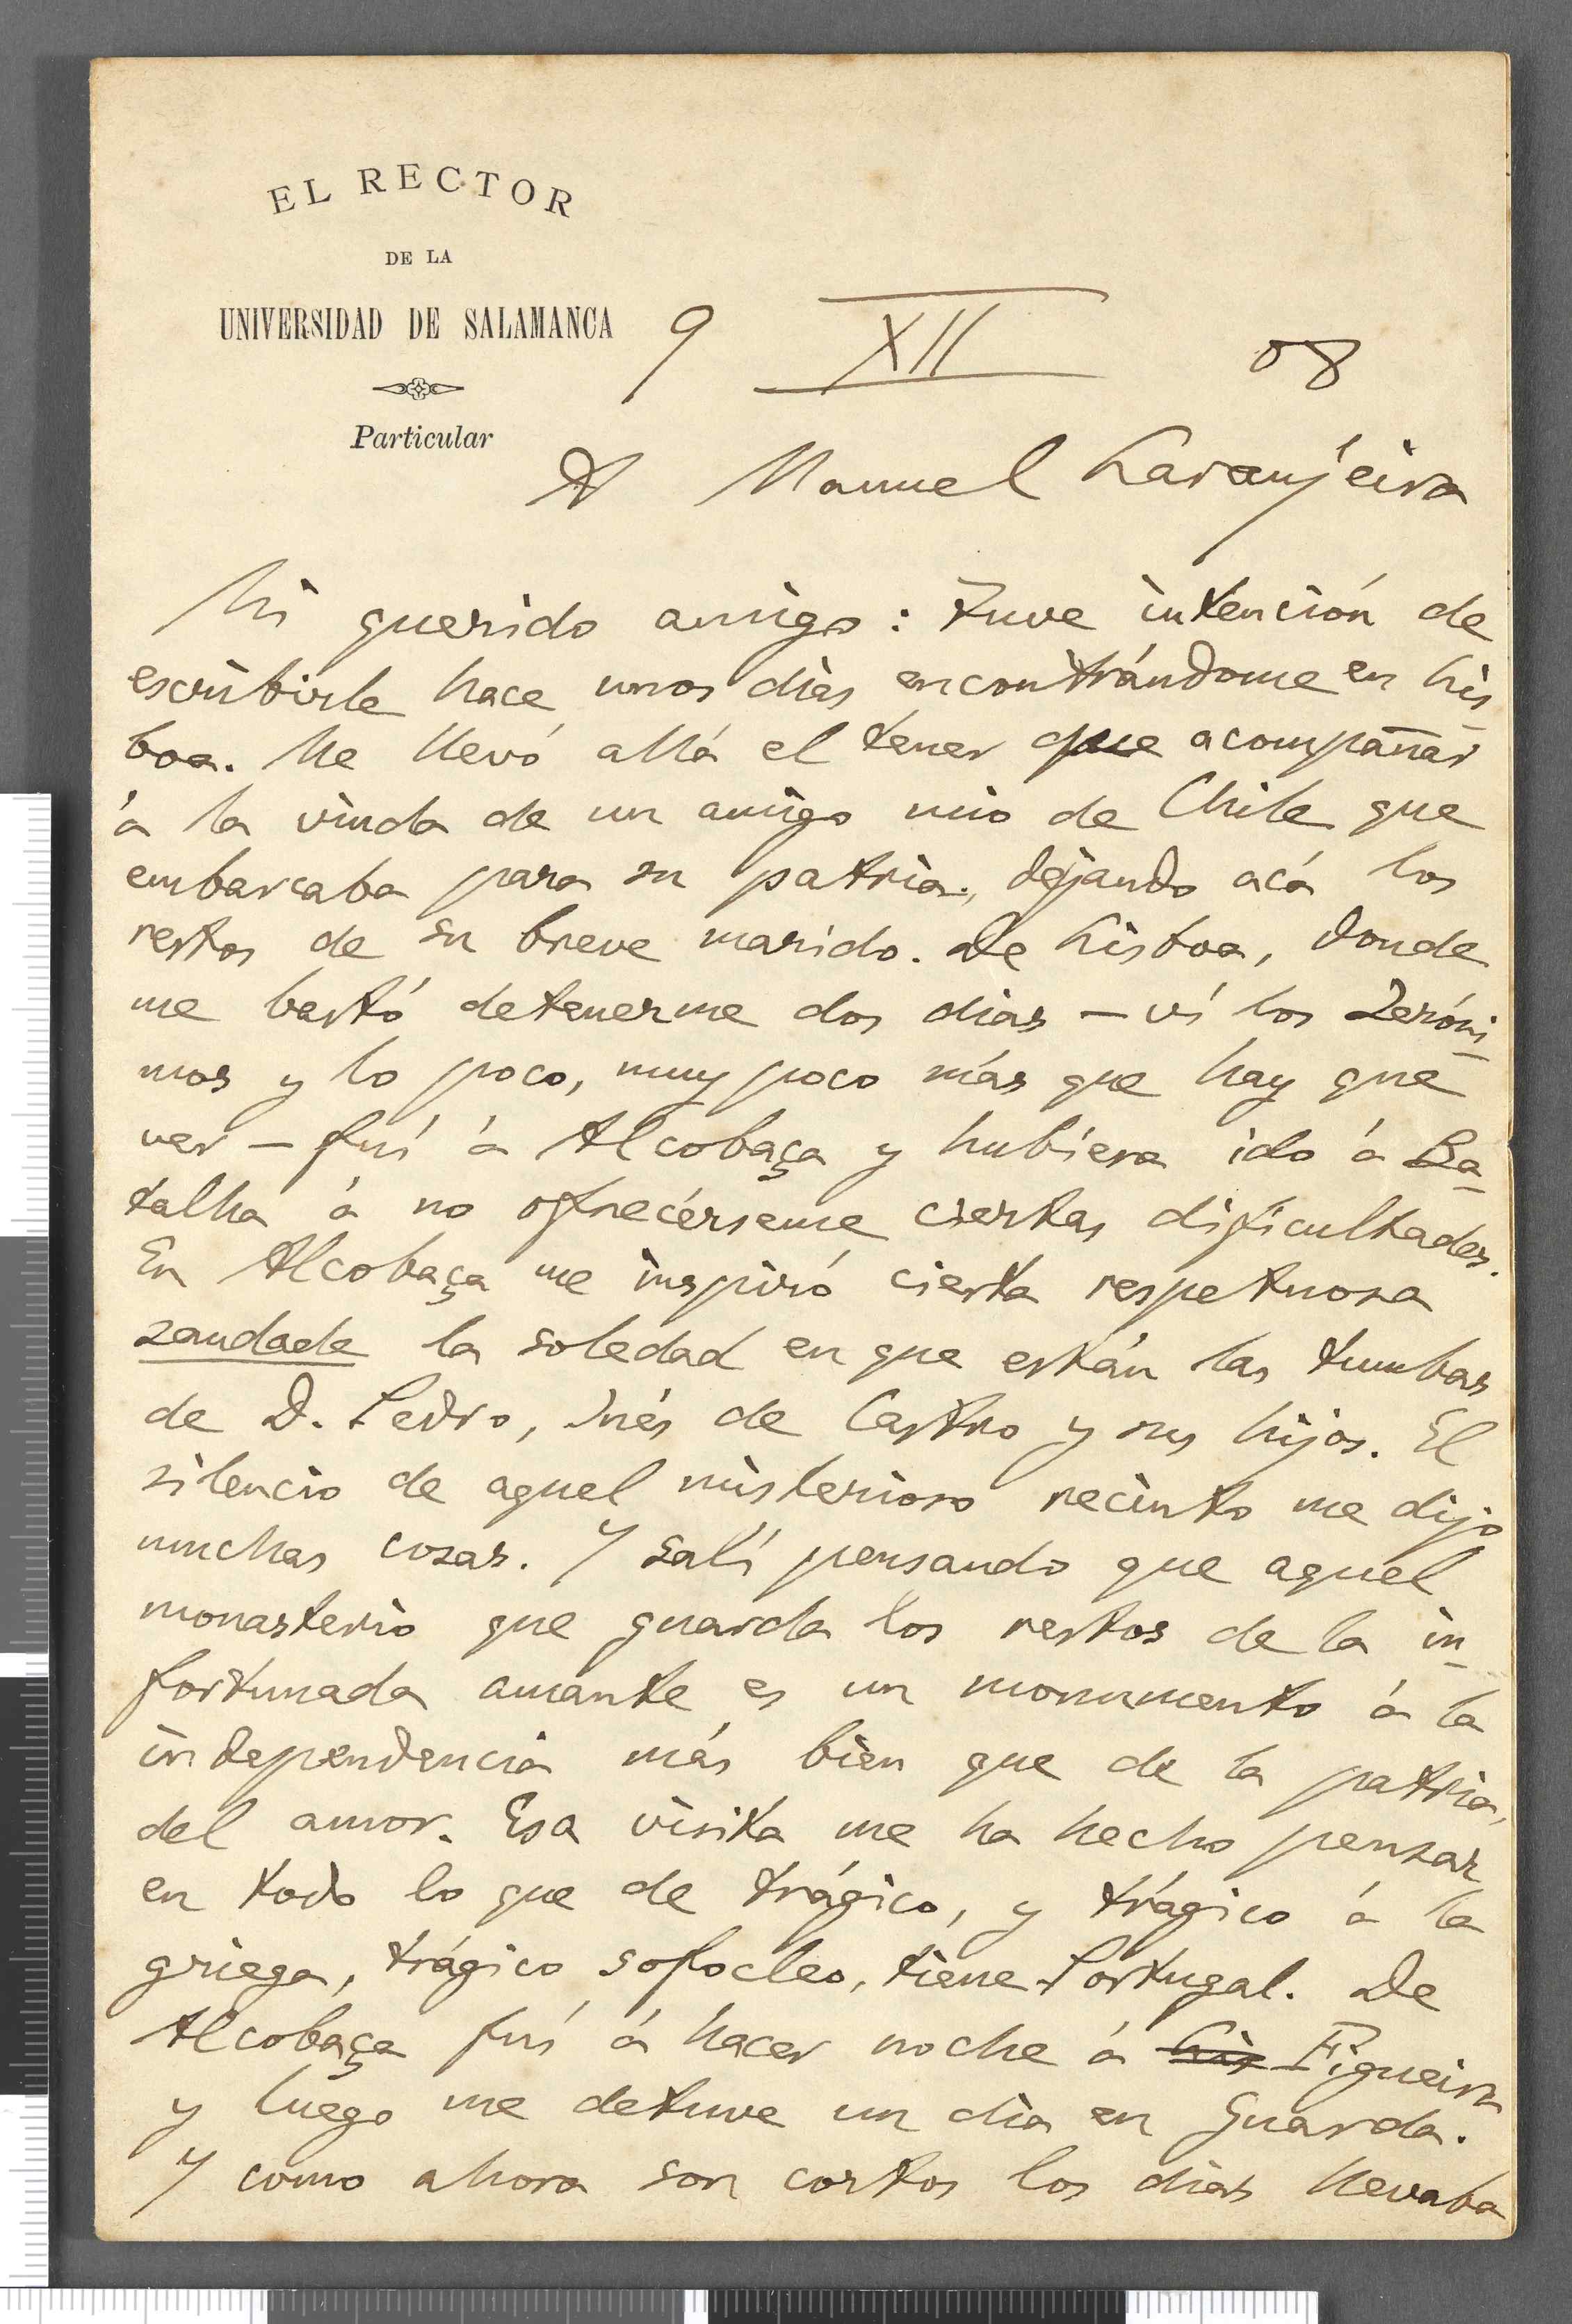 EL RECTOR
DE LA
UNIVERSIDAD DE SALAMANCA
Particular
9 XII 08
A Manuel Laranjeira
Mi querido amigo: Tuve intención de
escribirle hace unos dias encontrándome en Lis-
boa. Me llevó allá el tener que acompañar
á la viuda de un amigo mio de Chile que
embarcaba para su patria, dejando acá los
restos de su breve marido. De Lisboa, donde
me bastó detenerme dos dias — ví los Jeróni-
mos y lo poco, muy poco más que hay que
ver — fuí á Alcobaça y hubiera ido á Ba-
talha á no ofrecérseme ciertas dificultades.
En Alcobaça me inspiró cierta respetuosa
saudade la soledad en que están las tumbas
de D. Pedro, Inés de Castro y sus hijos. El
silencio de aquel misterioso recinto me dijo
muchas cosas. Y salí pensando que aquel
monasterio que guarda los restos de la in-
fortunada amante es un monumento á la
independencia más bien que de la patria,
del amor. Esa visita me ha hecho pensar
en todo lo que de trágico, y trágico á la
griega, trágico sofocleo, tiene Portugal. De
Alcobaça fuí á hacer noche á Lis Figueira
y luego me detuve un dia en Guarda.
Y como ahora son cortos los dias llevaba